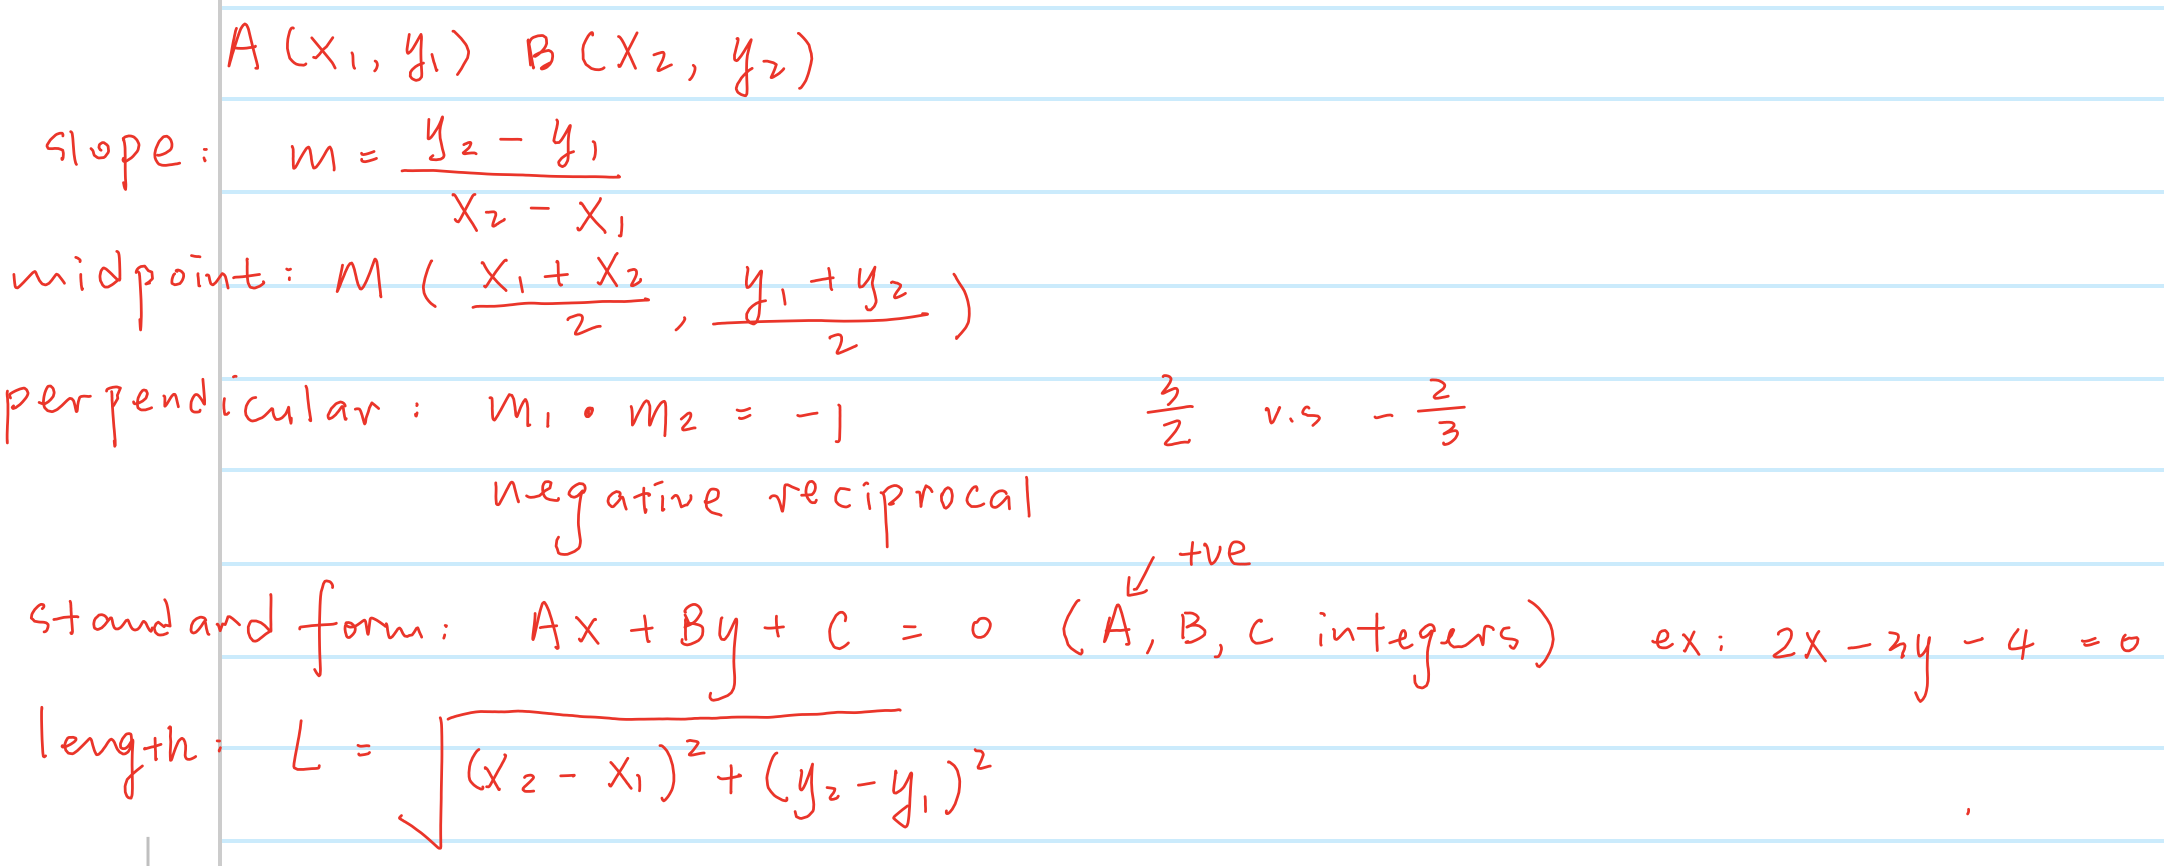 A (x₁, y₁) B (x₂, y₂)
slope: m = (y₂ - y₁) / (x₂ - x₁)
midpoint: M ( (x₁ + x₂)/2 , (y₁ + y₂)/2 )
perpendicular: m₁ • m₂ = -1 3/2 v.s - 2/3
negative reciprocal
+ve
standard form: Ax + By + C = 0 (A, B, C integers) ex: 2x - 3y - 4 = 0
length: L = √((x₂ - x₁)² + (y₂ - y₁)²)